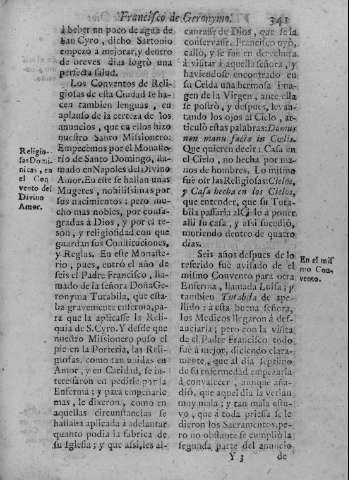 Francisco de Geronymo. 341
à beber un poco de agua de
San Cyro, dicho Sartonio
empezò à mejorar, y dentro
de breves dias logrò una
perfecta salud.
Los Conventos de Reli-
giosas de esta Ciudad se ha-
cen tambien lenguas, en
aplauso de la certeza de los
anuncios, que en ellos hizo
nuestro Santo Missionero.
Empecemos por el Monaste-
rio de Santo Domingo, lla-
mado en Napoles del Divino
Amor. En este se hallan unas
Mugeres, nobilissimas por
sus nacimientos; pero mu-
cho mas nobles, por consa-
gradas à Dios, y por el te-
son, y religiosidad con que
guardan sus Constituciones,
y Reglas. En este Monaste-
rio, pues, entrò el año de
seis el Padre Francisco, lla-
mado de la señora Doña Ge-
ronyma Tutabila, que esta-
ba gravemente enferma, pa-
ra que la aplicasse la Reli-
quia de S. Cyro. Y desde que
nuestro Missionero puso el
pie en la Porteria, las Reli-
giosas, como tan unidas en
Amor, y en Caridad, se in-
teressaron en pedirle por la
Enferma; y para empeñarle
mas, le dixeron, como en
aquellas circunstancias se
hallaba aplicada à adelantar
quanto podia la fabrica de
su Iglesia; y que assi, les al-
Religio-
sas Domi-
nicas, en
el Con-
vento del
Divino
Amor.
canzasse de Dios, que se la
conservasse. Francisco oyò,
callò, y se fue en derechura
à visitar à aquella señora, y
haviendose encontrado en
su Celda una hermosa Ima-
gen de la Virgen, ante ella
se postrò, y despues, levan-
tando los ojos al Cielo, ar-
ticulò estas palabras: Domus
non manu facta in Cœlis.
Que quieren decir: Casa en
el Cielo, no hecha por ma-
nos de hombres. Lo mismo
fue oir las Religiosas: Cielos,
y Casa hecha en los Cielos,
que entender, que su Tuta-
bila passaria al Cielo à poner
alli su casa, y assi sucediò,
muriendo dentro de quatro
dias.
Seis años despues de lo
referido fue avisado de el
mismo Convento para otra
Enferma, llamada Luisa; y
tambien Tutabila de ape-
llido. A esta buena señora,
los Medicos llegaron à des-
auciarla; pero con la visita
de el Padre Francisco todo
fue à mejor, diciendo clara-
mente, que al dia septimo
de su enfermedad empezaria
à convalecer, aunque aña-
diò, que aquel dia la verian
muy mala; y tan mala estu-
vo, que à toda priessa se le
dieron los Sacramentos, pe-
ro no obstante se cumpliò la
segunda parte del anuncio
En el mis-
mo Con-
vento.
Y 3 de